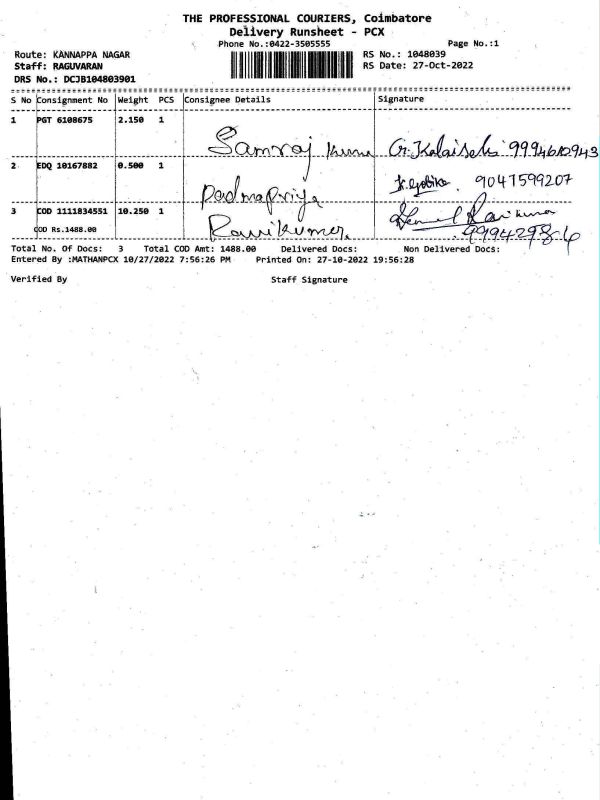 THE PROFESSIONAL COURIERS, Coimbatore
Delivery Runsheet - PCX
Phone No.:0422-3505555 Page No.:1
Route: KANNAPPA NAGAR RS No.: 1048039
Staff: RAGUVARAN RS Date: 27-Oct-2022
DRS No.: DCJB104803901
S No Consignment No Weight PCS Consignee Details Signature
1 PGT 6108675 2.150 1
Samraj Kumar G. Kalaiselvi
2 EDQ 10167882 0.500 1
Padmapriya K. Gobika. 9047599207
3 COD 1111834551 10.250 1
COD Rs.1488.00 Ravikumar
Total No. Of Docs: 3 Total COD Amt: 1488.00 Delivered Docs: Non Delivered Docs:
Entered By :MATHANPCX 10/27/2022 7:56:26 PM Printed On: 27-10-2022 19:56:28
Verified By Staff Signature